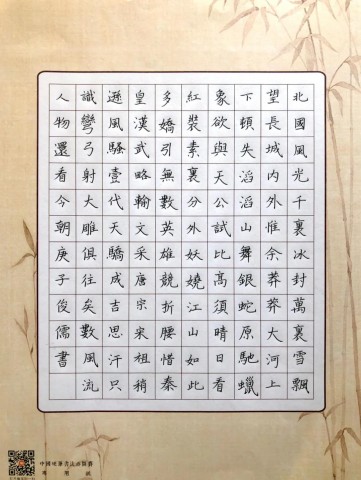 北國風光千裏冰封萬裏雪飄
望長城內外惟余莽莽大河上
下頓失滔滔山舞銀蛇原馳蠟
象欲與天公試比高須晴日看
紅裝素裏分外妖嬈江山如此
多嬌引無數英雄競折腰惜秦
皇漢武略輸文采唐宗宋祖稍
遜風騷壹代天驕成吉思汗只
識彎弓射大雕俱往矣數風流
人物還看今朝庚子俊儒書
中國硬筆書法
專用紙